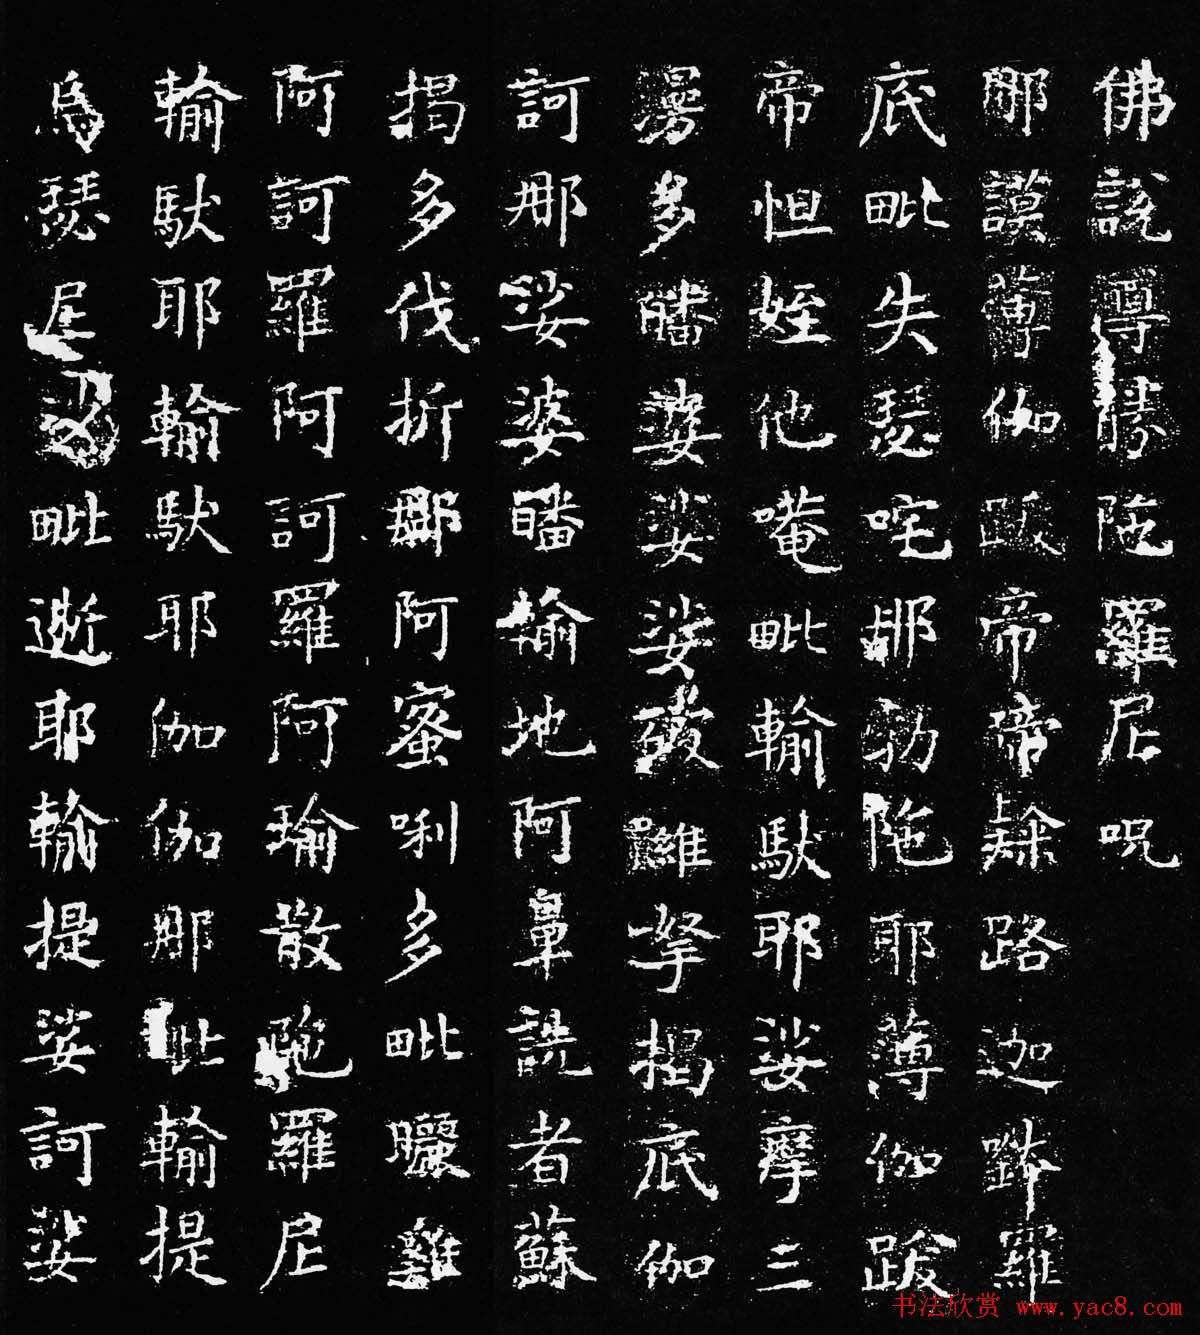 佛說尊勝陁羅尼呪
那謨薄伽跋帝帝隸路迦羅
底毗失瑟咤那勃陁耶薄伽跋
帝怛姪他唵毗輸馱耶娑摩三
漫多皤婆娑娑破囉拏揭底伽
訶那娑婆皤輸地阿鼻詵者蘇
揭多伐折那阿蜜唎多毗曬雞
阿訶羅阿訶羅阿瑜散陁羅尼
輸馱耶輸馱耶伽伽那毗輸提
烏瑟尼毗逝耶輸提娑訶娑
书法欣赏 www.yac8.com